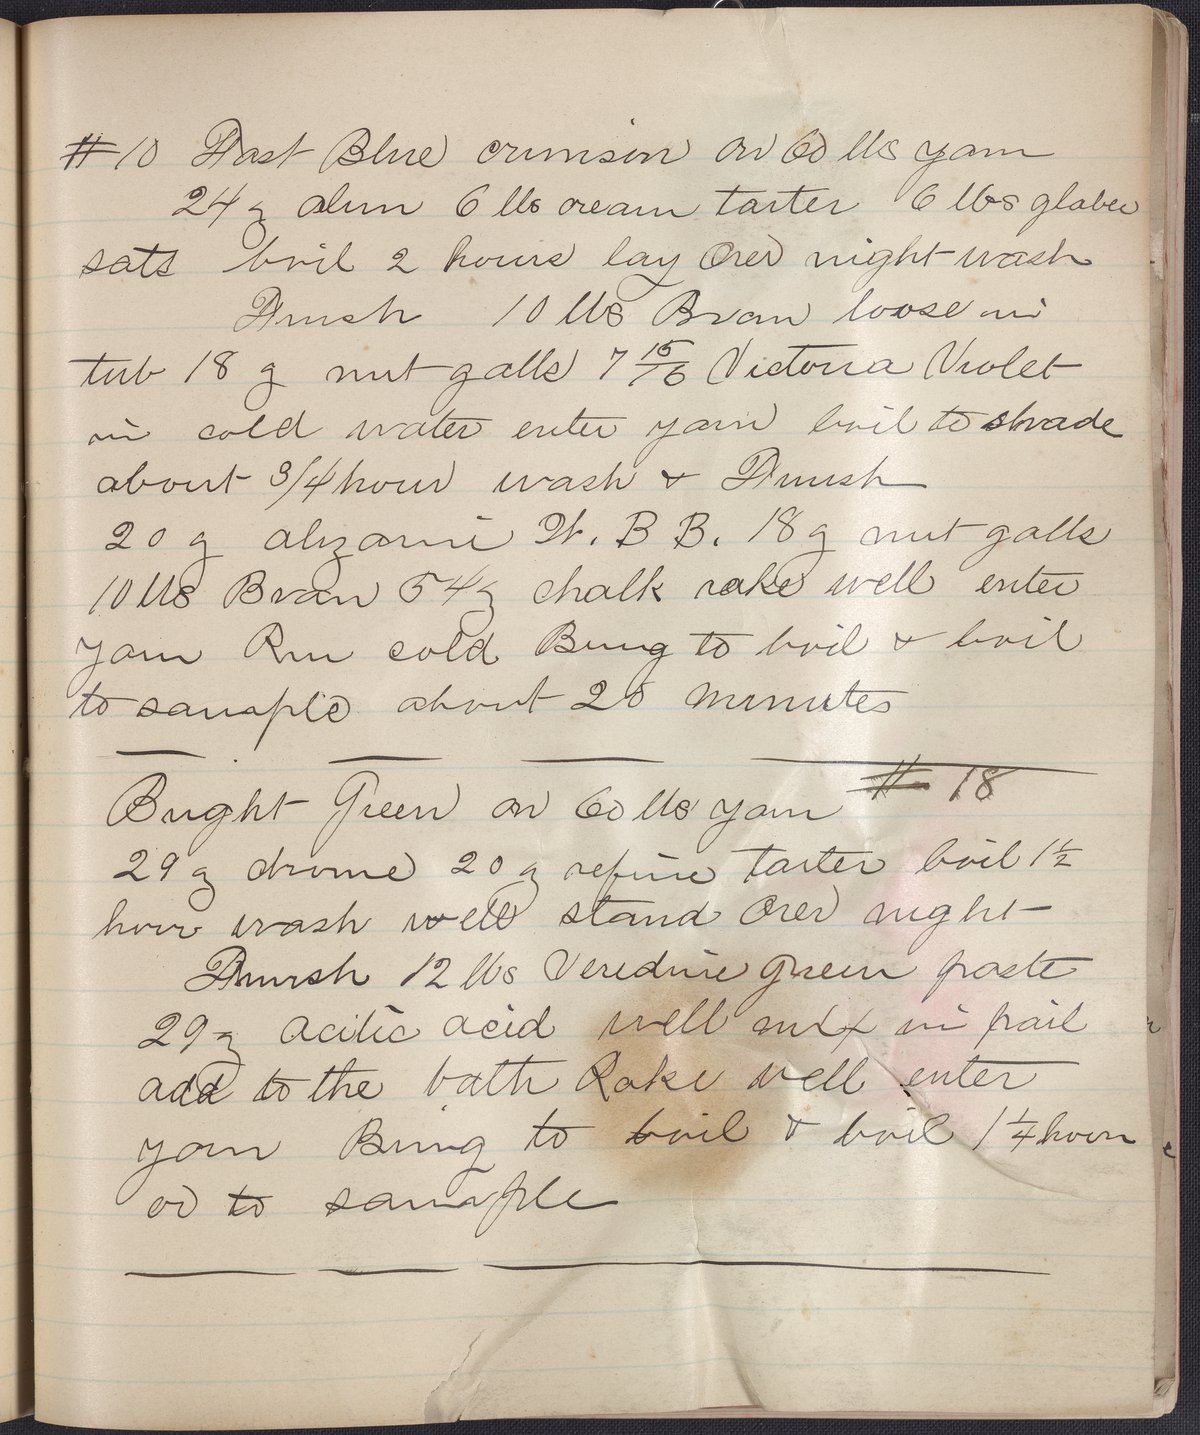 #10 Fast Blue crimson on 60 lbs yarn
24 z alum 6 lbs cream tarter 6 lbs glaber
sats boil 2 hours lay over night wash
Finish 10 lbs Bran loose in
tub 18 z nut galls 7 15/16 Victoria Violet
in cold water enter yarn boil to shade
about 3/4 hour wash & Finish
20 z alizarin W. B B. 18 z nut galls
10 lbs Bran 54 z chalk rake well enter
yarn Run cold Bring to boil & boil
to sample about 20 minutes
Bright Green on 60 lbs yarn # 18
29 z chrome 20 z refine tarter boil 1 1/2
hour wash well stand over night
Finish 12 lbs Veredine green paste
29 z acitic acid well mix in pail
add to the bath Rake well enter
yarn Bring to boil & boil 1 1/4 hour
or to sample